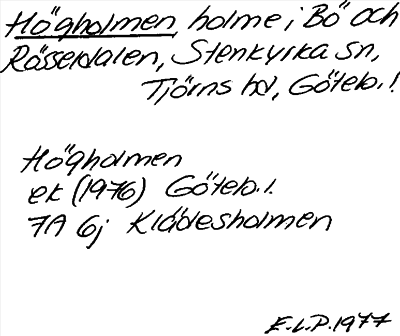 Högholmen, holme i Bö och
Rösseldalen, Stenkyrka sn,
Tjörns hd, Göteb. l.
Högholmen
ek (1976) Göteb. l.
7A 6j Klädesholmen
E.L.P. 1977